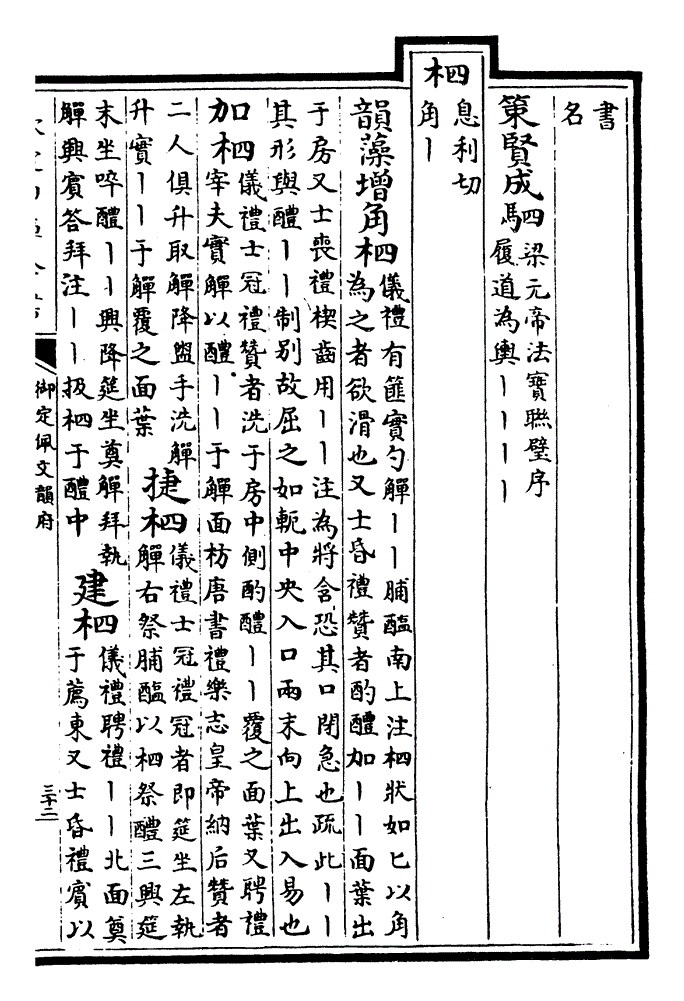 書
名
策賢成駟梁元帝法寶聯璧序
履道為輿丨丨丨丨
柶息利切
角丨
韻藻增角柶儀禮有篚實勺觶丨丨脯醢南上注柶狀如匕以角
為之者欲滑也又士昏禮贊者酌醴加丨丨面葉出
于房又士喪禮楔齒用丨丨注為將含恐其口閉急也疏此丨丨
其形與醴丨丨制別故屈之如軛中央入口兩末向上出入易也
加柶儀禮士冠禮贊者洗于房中側酌醴丨丨覆之面葉又聘禮
宰夫實觶以醴丨丨于觶面枋唐書禮樂志皇帝納后贊者
二人俱升取觶降盥手洗觶
升實丨丨于觶覆之面葉
捷柶儀禮士冠禮冠者即筵坐左執
觶右祭脯醢以柶祭醴三興筵
末坐啐醴丨丨興降筵坐奠觶拜執
觶興賓答拜注丨丨扱柶于醴中
建柶儀禮聘禮丨丨北面奠
于薦東又士昏禮賓以
御定佩文韻府
三十二